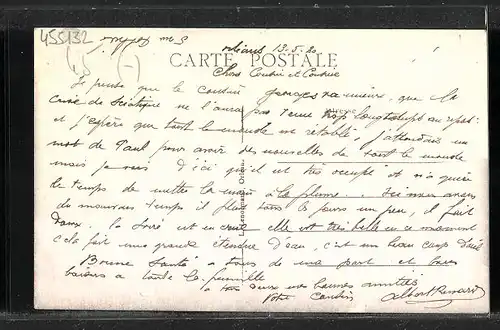 455132
Orléans 13.5.20
CARTE POSTALE
Chers Cousin et Cousine
Je pense que le cousin Georges va mieux, que la
crise de Sciatique ne l'aura pas tenue trop longtemps au repos.
et j'espère que tout le monde est rétabli j'attendais un
mot de Paul pour avoir des nouvelles de tout le monde
mais je vois d'ici qu'il est très occupé et n'a guère
le temps de mettre la main à la plume. Ici nous avons
du mauvais temps il pleut tous les jours un peu, il fait
doux. la Loire est en crue elle est très belle en ce moment
cela fait une grande étendue d'eau, c'est un beau coup d'œil
Bonne Santé à tous de ma part et bons
baisers à toute la famille
à tous deux mes bonnes amitiés
Votre Cousin
Albert Renard